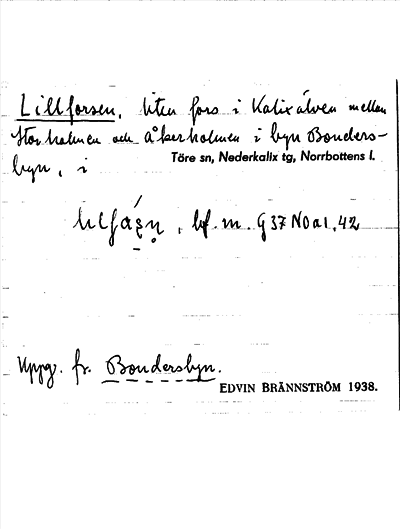 Lillforsen, liten fors i Kalixälven mellan
Storholmen och Åkerholmen i byn Bonders-
byn, i Töre sn, Nederkalix tg, Norrbottens l.
bf. m. G 37 NO a 1, 42
Uppg. fr. Bondersbyn.
EDVIN BRÄNNSTRÖM 1938.